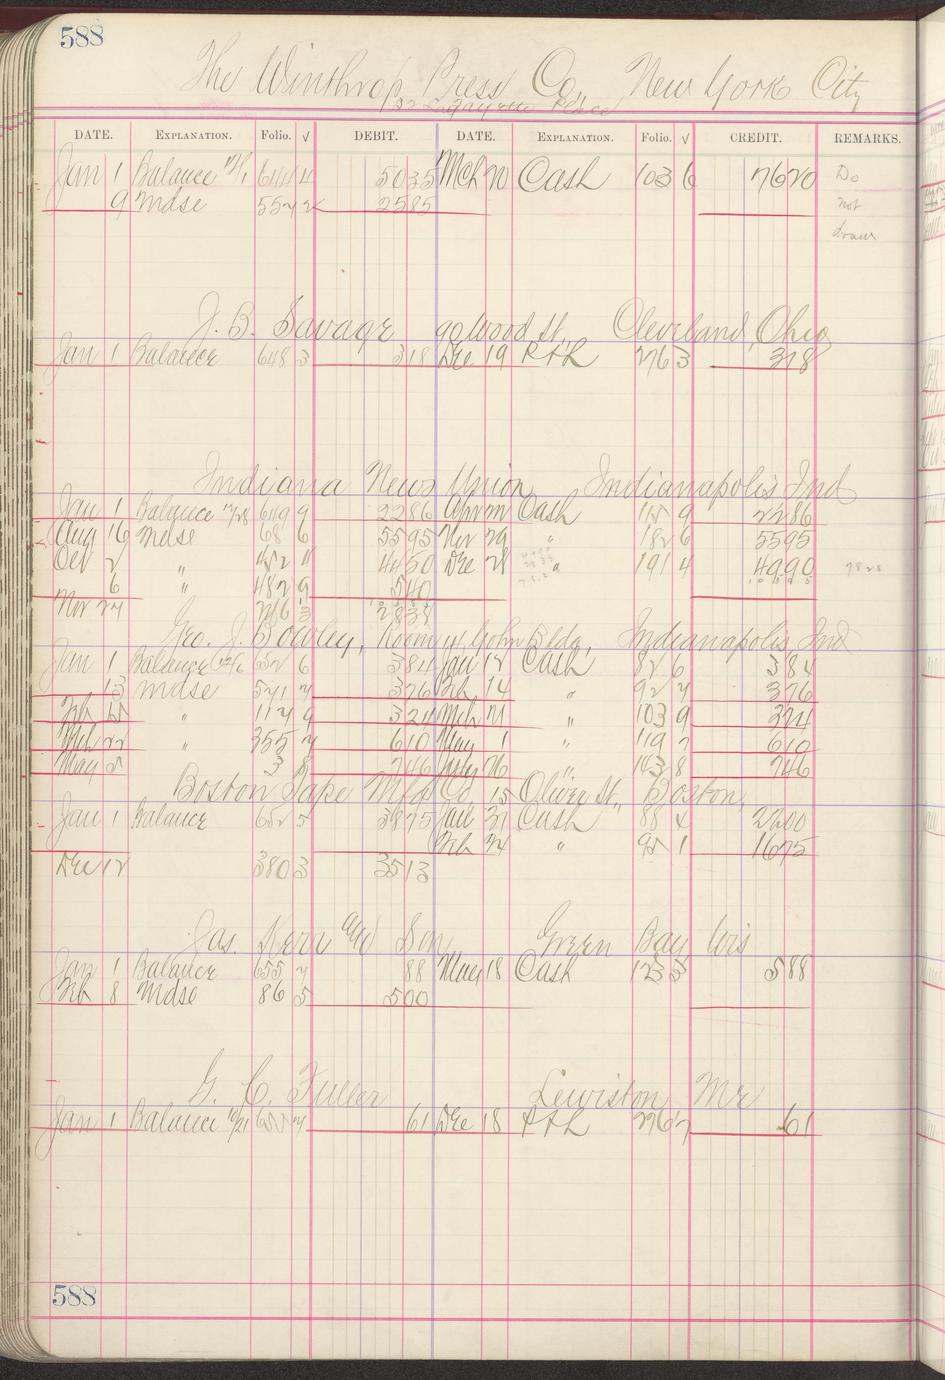 588
The Winthrop Press Co., New York City
32 Lafayette Place
DATE. EXPLANATION. FOLIO. √ DEBIT. DATE. EXPLANATION. FOLIO. √ CREDIT. REMARKS.
Jan 1 Balance 12/1 644 4 5035 Mch 20 Cash 103 6 7620 Do
9 Mdse 557 2 2585 not
draw
J. B. Savage 90 Wood St., Cleveland, Ohio
Jan 1 Balance 648 3 318 Dec 19 P&L 276 3 318
Indiana News Union, Indianapolis Ind
Jan 1 Balance 12/28 649 9 2286 Cash 115 9 2286
Aug 16 Mdse 68 6 5595 Nov 29 " 182 6 5595
Oct 2 " 452 4450 Dec 28 " 191 4 4990 7828
6 " 482 9 540
Nov 27 216 3 2838
Geo. J. Bodley, Room 4, John Bldg, Indianapolis, Ind
Jan 1 Balance 652 6 384 Jan 12 Cash 82 6 384
13 Mdse 571 7 376 Feb 14 " 92 7 376
Feb 15 " 117 9 324 Mch 21 " 103 9 324
Mch 22 " 355 7 610 May 1 " 119 7 610
May 5 " 3 8 746 " 143 8 746
Boston Tape Mfg Co 15 Oliver St., Boston,
Jan 1 Balance 652 5 3875 Jan 31 Cash 88 4 2200
Feb 24 " 95 1 1675
Dec 12 380 3 3513
Jas. Kerr and Son, Green Bay Wis
Jan 1 Balance 655 7 88 May 18 Cash 123 5 588
Feb 8 Mdse 86 5 500
G. C. Fuller Lewiston Me
Jan 1 Balance 10/21 655 7 61 Dec 18 P&L 276 7 61
588